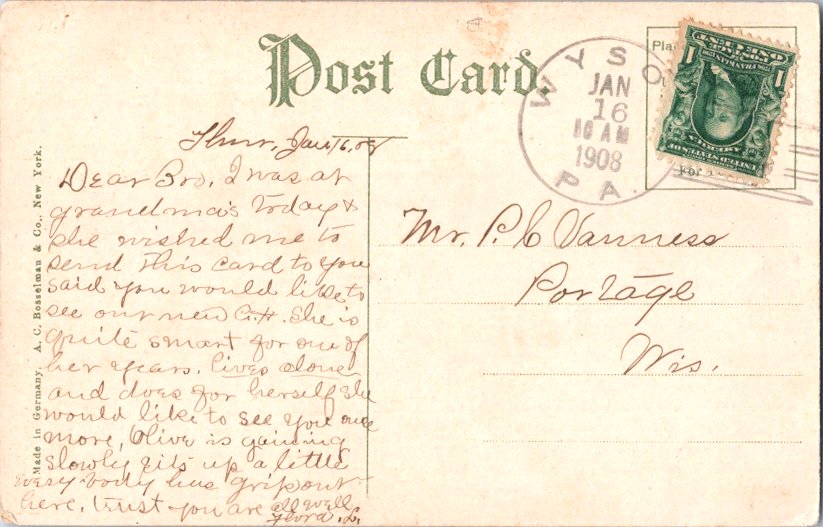 Post Card.
WYSO
JAN
16
10 AM
1908
PA.
Pla
For
POSTAGE
ONE CENT
1 1
FRANKLIN
UNITED STATES OF AMERICA
Made in Germany. A. C. Bosselman & Co., New York.
Thur, Jan 16, 08
Dear Bro, I was at
grandma's today &
she wished me to
send this card to you
said you would like to
see our new C.H. She is
quite smart for one of
her years. lives alone
and does for herself she
would like to see you once
more, Olive is gaining
slowly gits up a little
every body has grip out
here, trust you are all well
L.
Mr. P. C Vanness
Portage
Wis.